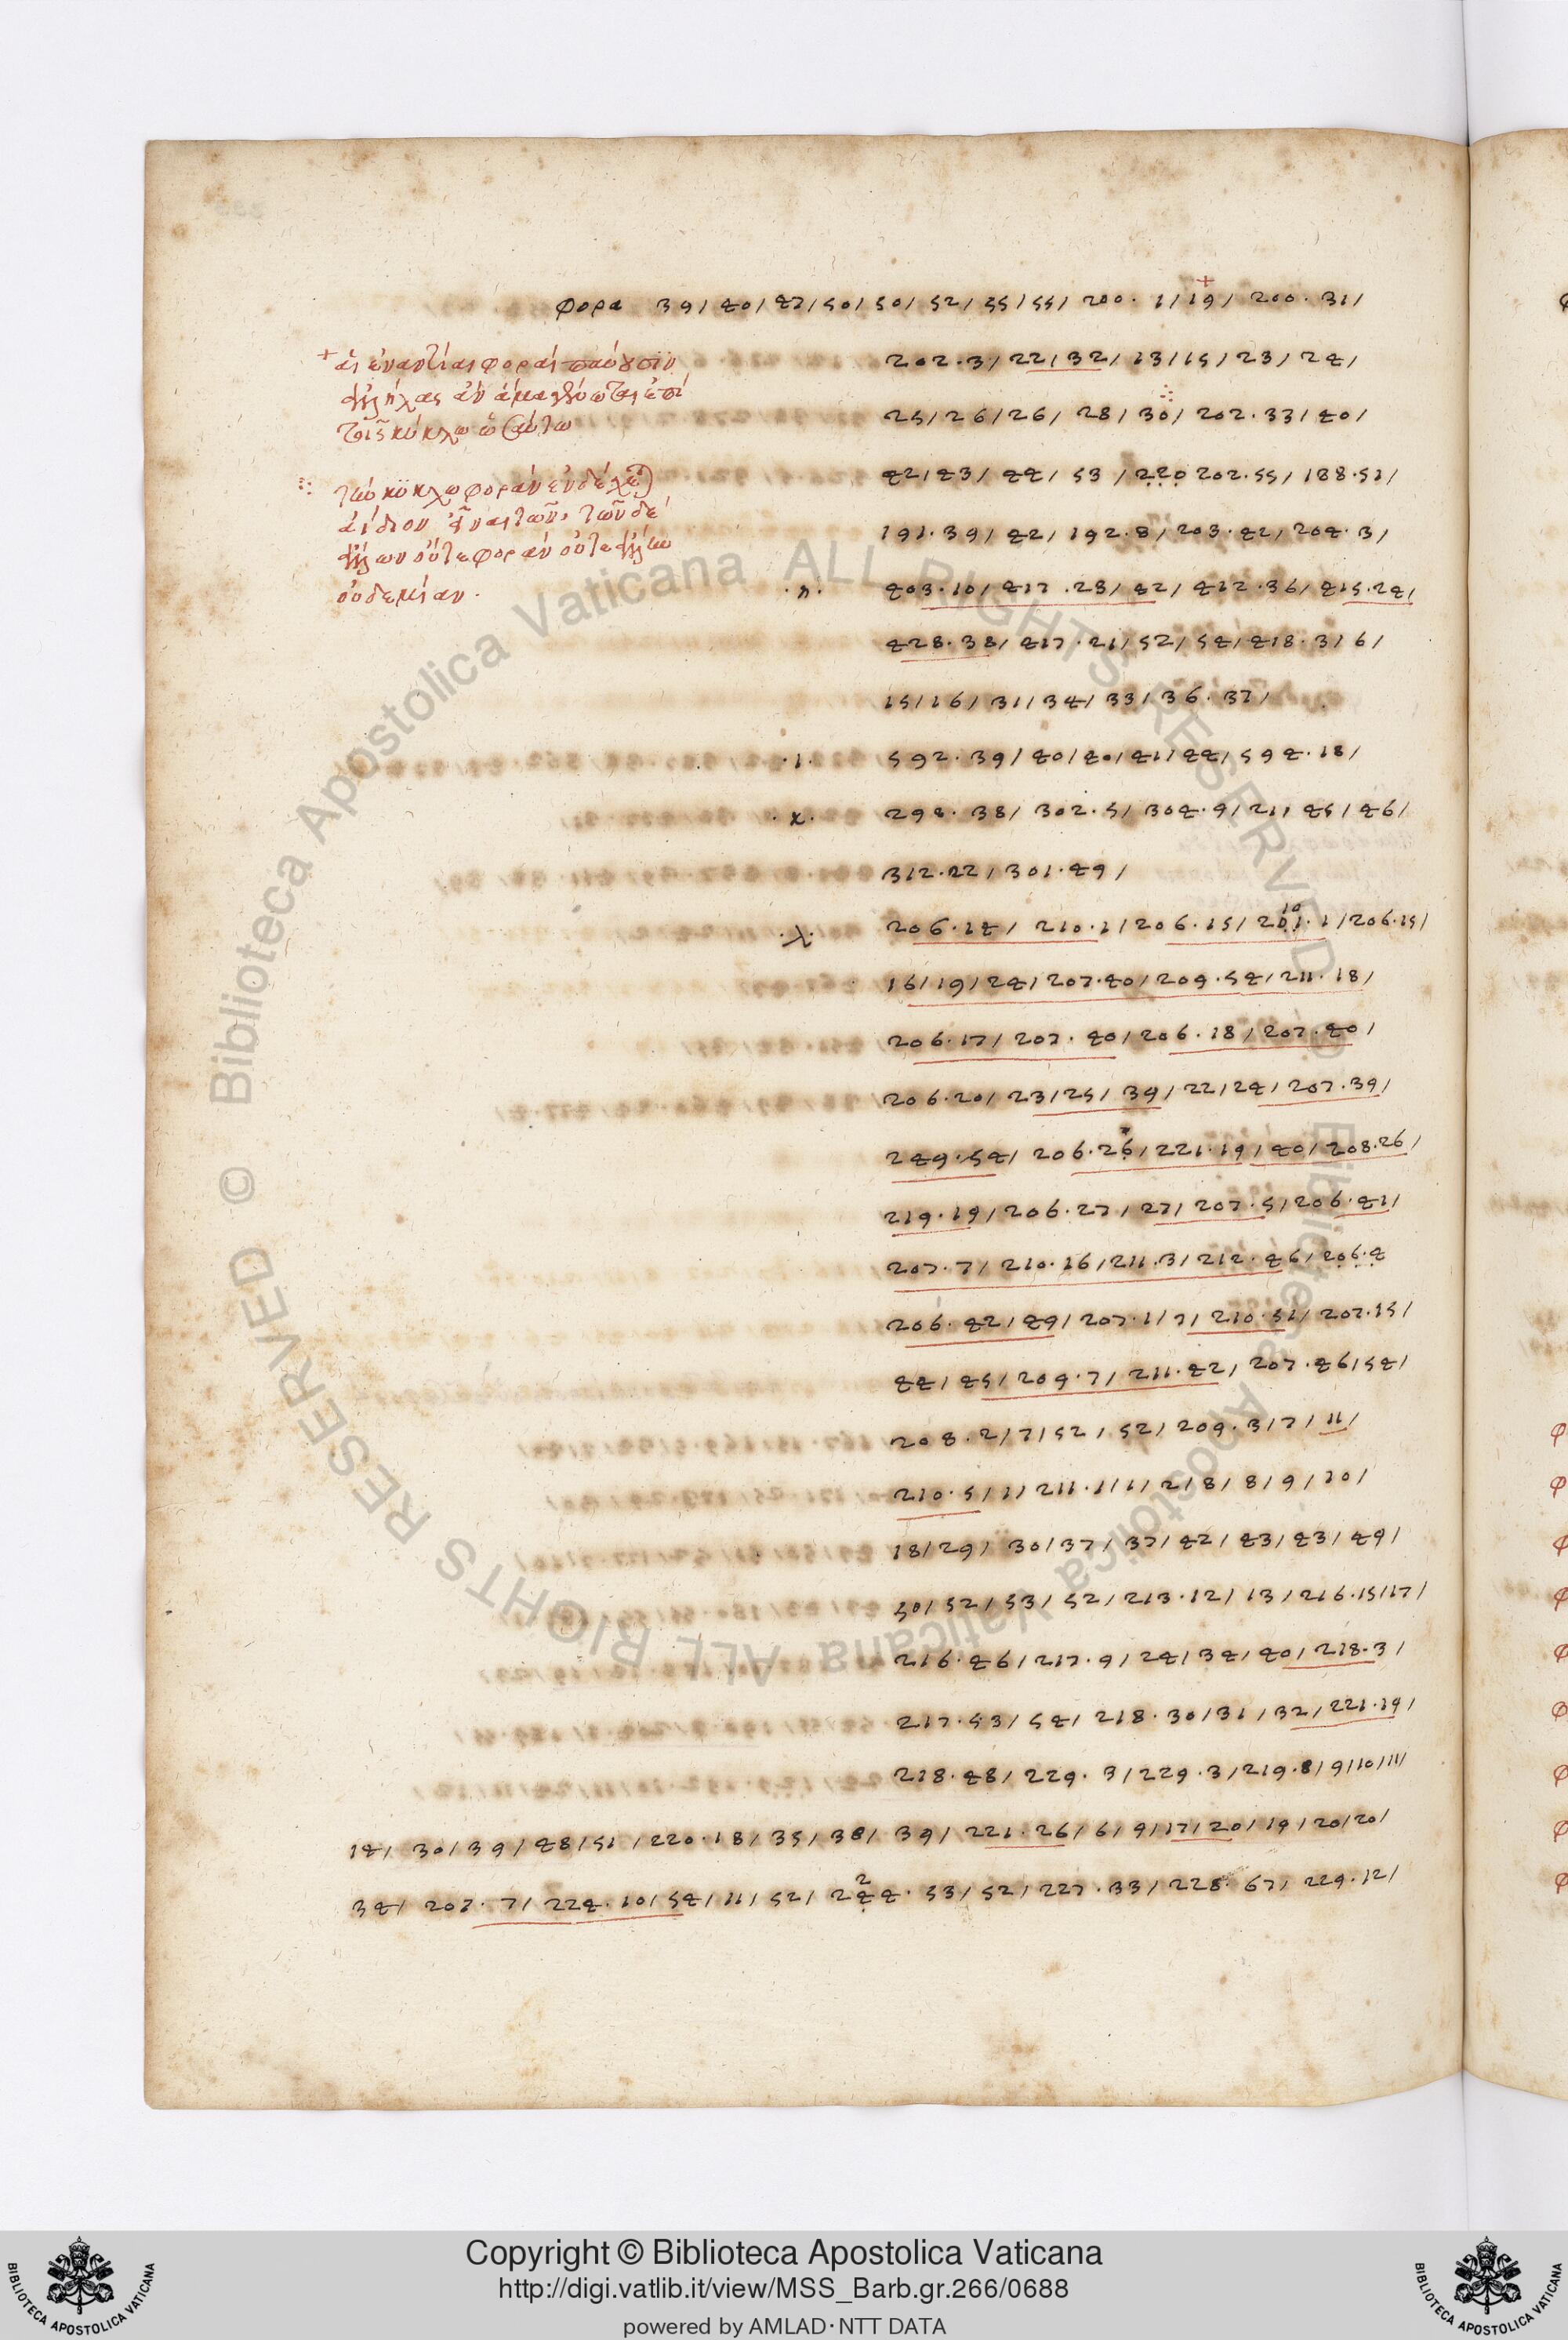 φορα 39/ 40/ 47/ 50/ 50/ 52/ 55/ 55/ 200. 1/ 19/ 200. 31/
202.3/ 22/ 32/ 13/ 15/ 23/ 24/
+ αἱ ἐναντίαι φοραὶ παύουσιν
ἀλλήλας
25/ 26/ 26/ 28/ 30/ 202.33/ 40/
τῷ κύκλῳ
42/ 43/ 44/ 53/ 220 202.55/ 188.51/
τὴν κύκλῳ φορὰν ἐνδέχεται
ἀίδιον εἶναι τῶν δὲ
191.39/ 42/ 192.8/ 203.42/ 204.3/
ἄλλων οὔτε φορὰν οὔτε ἄλλην
οὐδεμίαν.
.η. 403.10/ 417.23/ 42/ 412.36/ 415.24/
428.38/ 417.21/ 52/ 54/ 418.3/ 6/
15/ 16/ 31/ 34/ 33/ 36. 37/
.ι. 592.39/ 40/ 40/ 41/ 44/ 594.18/
.κ. 298.38/ 302.5/ 304.9/ 21/ 45/ 46/
312.22/ 301.49/
.λ. 206.14/ 210.1/ 206.15/ 201.1/ 206.15/
10
16/ 19/ 24/ 207.40/ 209.54/ 211.18/
206.17/ 207.40/ 206.18/ 207.40/
206.20/ 23/ 25/ 39/ 22/ 24/ 207.39/
249.54/ 206.26/ 221.19/ 40/ 208.26/
219.19/ 206.27/ 27/ 207.5/ 206.41/
207.7/ 210.16/ 211.3/ 212.46/ 206.4
206.42/ 49/ 207.1/ 7/ 210.51/ 207.15/
44/ 45/ 209.7/ 211.42/ 207.46/ 54/
208.2/ 7/ 52/ 52/ 209.3/ 7/ 11/
210.5/ 1/ 211.1/ 1/ 2/ 8/ 8/ 9/ 10/
18/ 29/ 30/ 37/ 37/ 42/ 43/ 43/ 49/
50/ 52/ 53/ 52/ 213.12/ 13/ 216.15/ 17/
216.46/ 217.9/ 24/ 34/ 40/ 218.3/
217.53/ 54/ 218.30/ 31/ 32/ 221.19/
218.48/ 229.3/ 229.3/ 219.8/ 9/ 10/ 11/
14/ 30/ 39/ 48/ 51/ 220.18/ 35/ 38/ 39/ 221.26/ 6/ 9/ 17/ 20/ 19/ 20/ 20/
34/ 207.7/ 224.10/ 54/ 11/ 52/ 244.53/ 52/ 227.33/ 228.67/ 229.12/
2
Copyright © Biblioteca Apostolica Vaticana
http://digi.vatlib.it/view/MSS_Barb.gr.266/0688
powered by AMLAD·NTT DATA